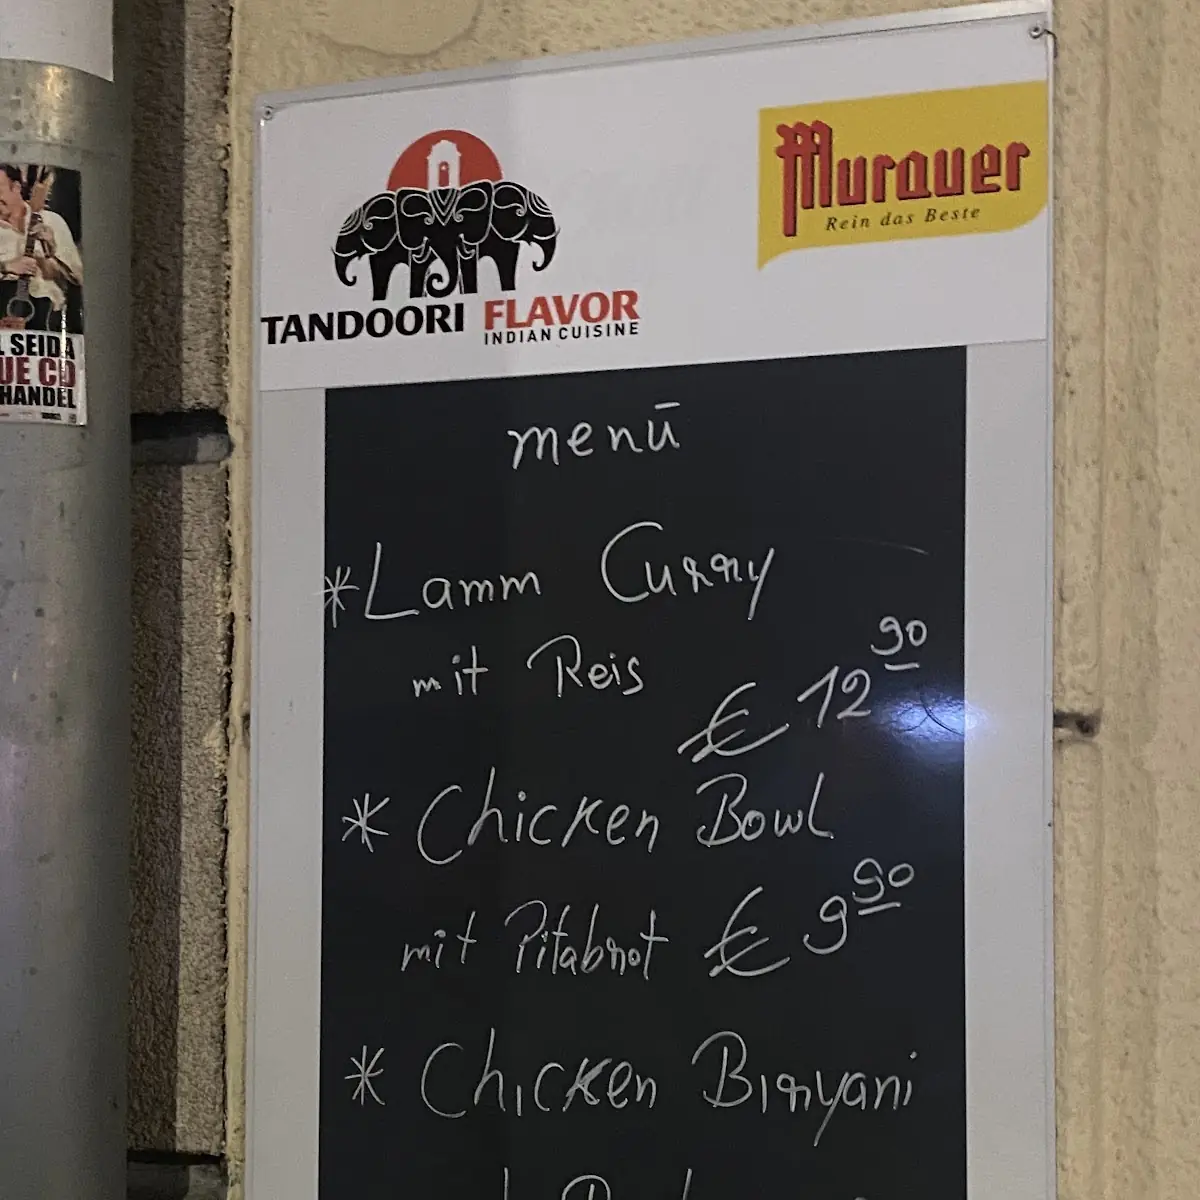 TANDOORI FLAVOR
INDIAN CUISINE
Murauer
Rein das Beste
menü
*Lamm Curry
mit Reis
€ 12 90
* Chicken Bowl
mit Pitabrot € 9 90
* Chicken Biryani
L SEIDA
UE CD
HANDEL